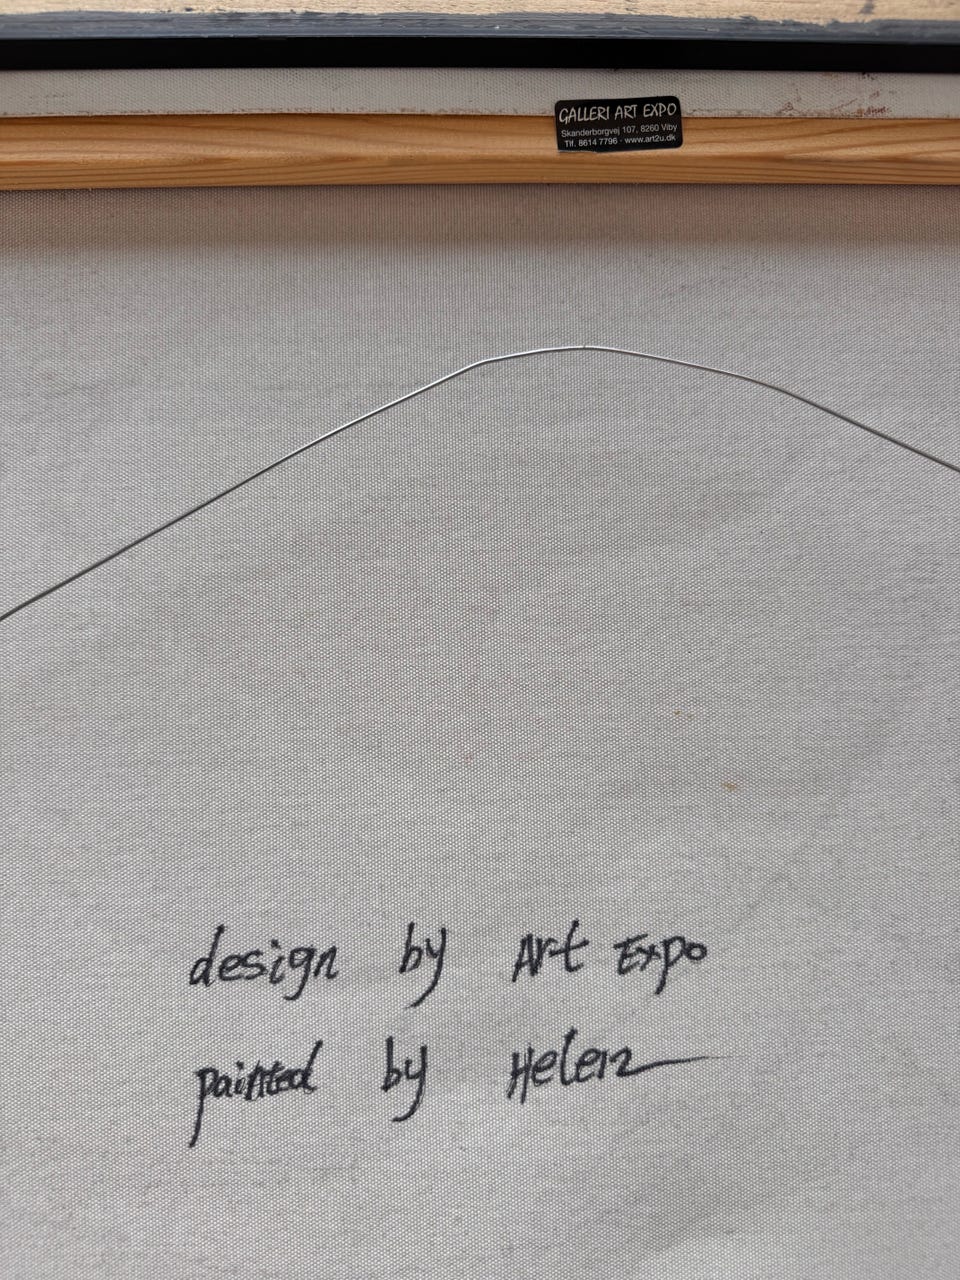 GALLERI ART EXPO
Skanderborgvej 107, 8260 Viby
Tlf. 8614 7796 · www.art2u.dk
design by Art Expo
painted by Helen